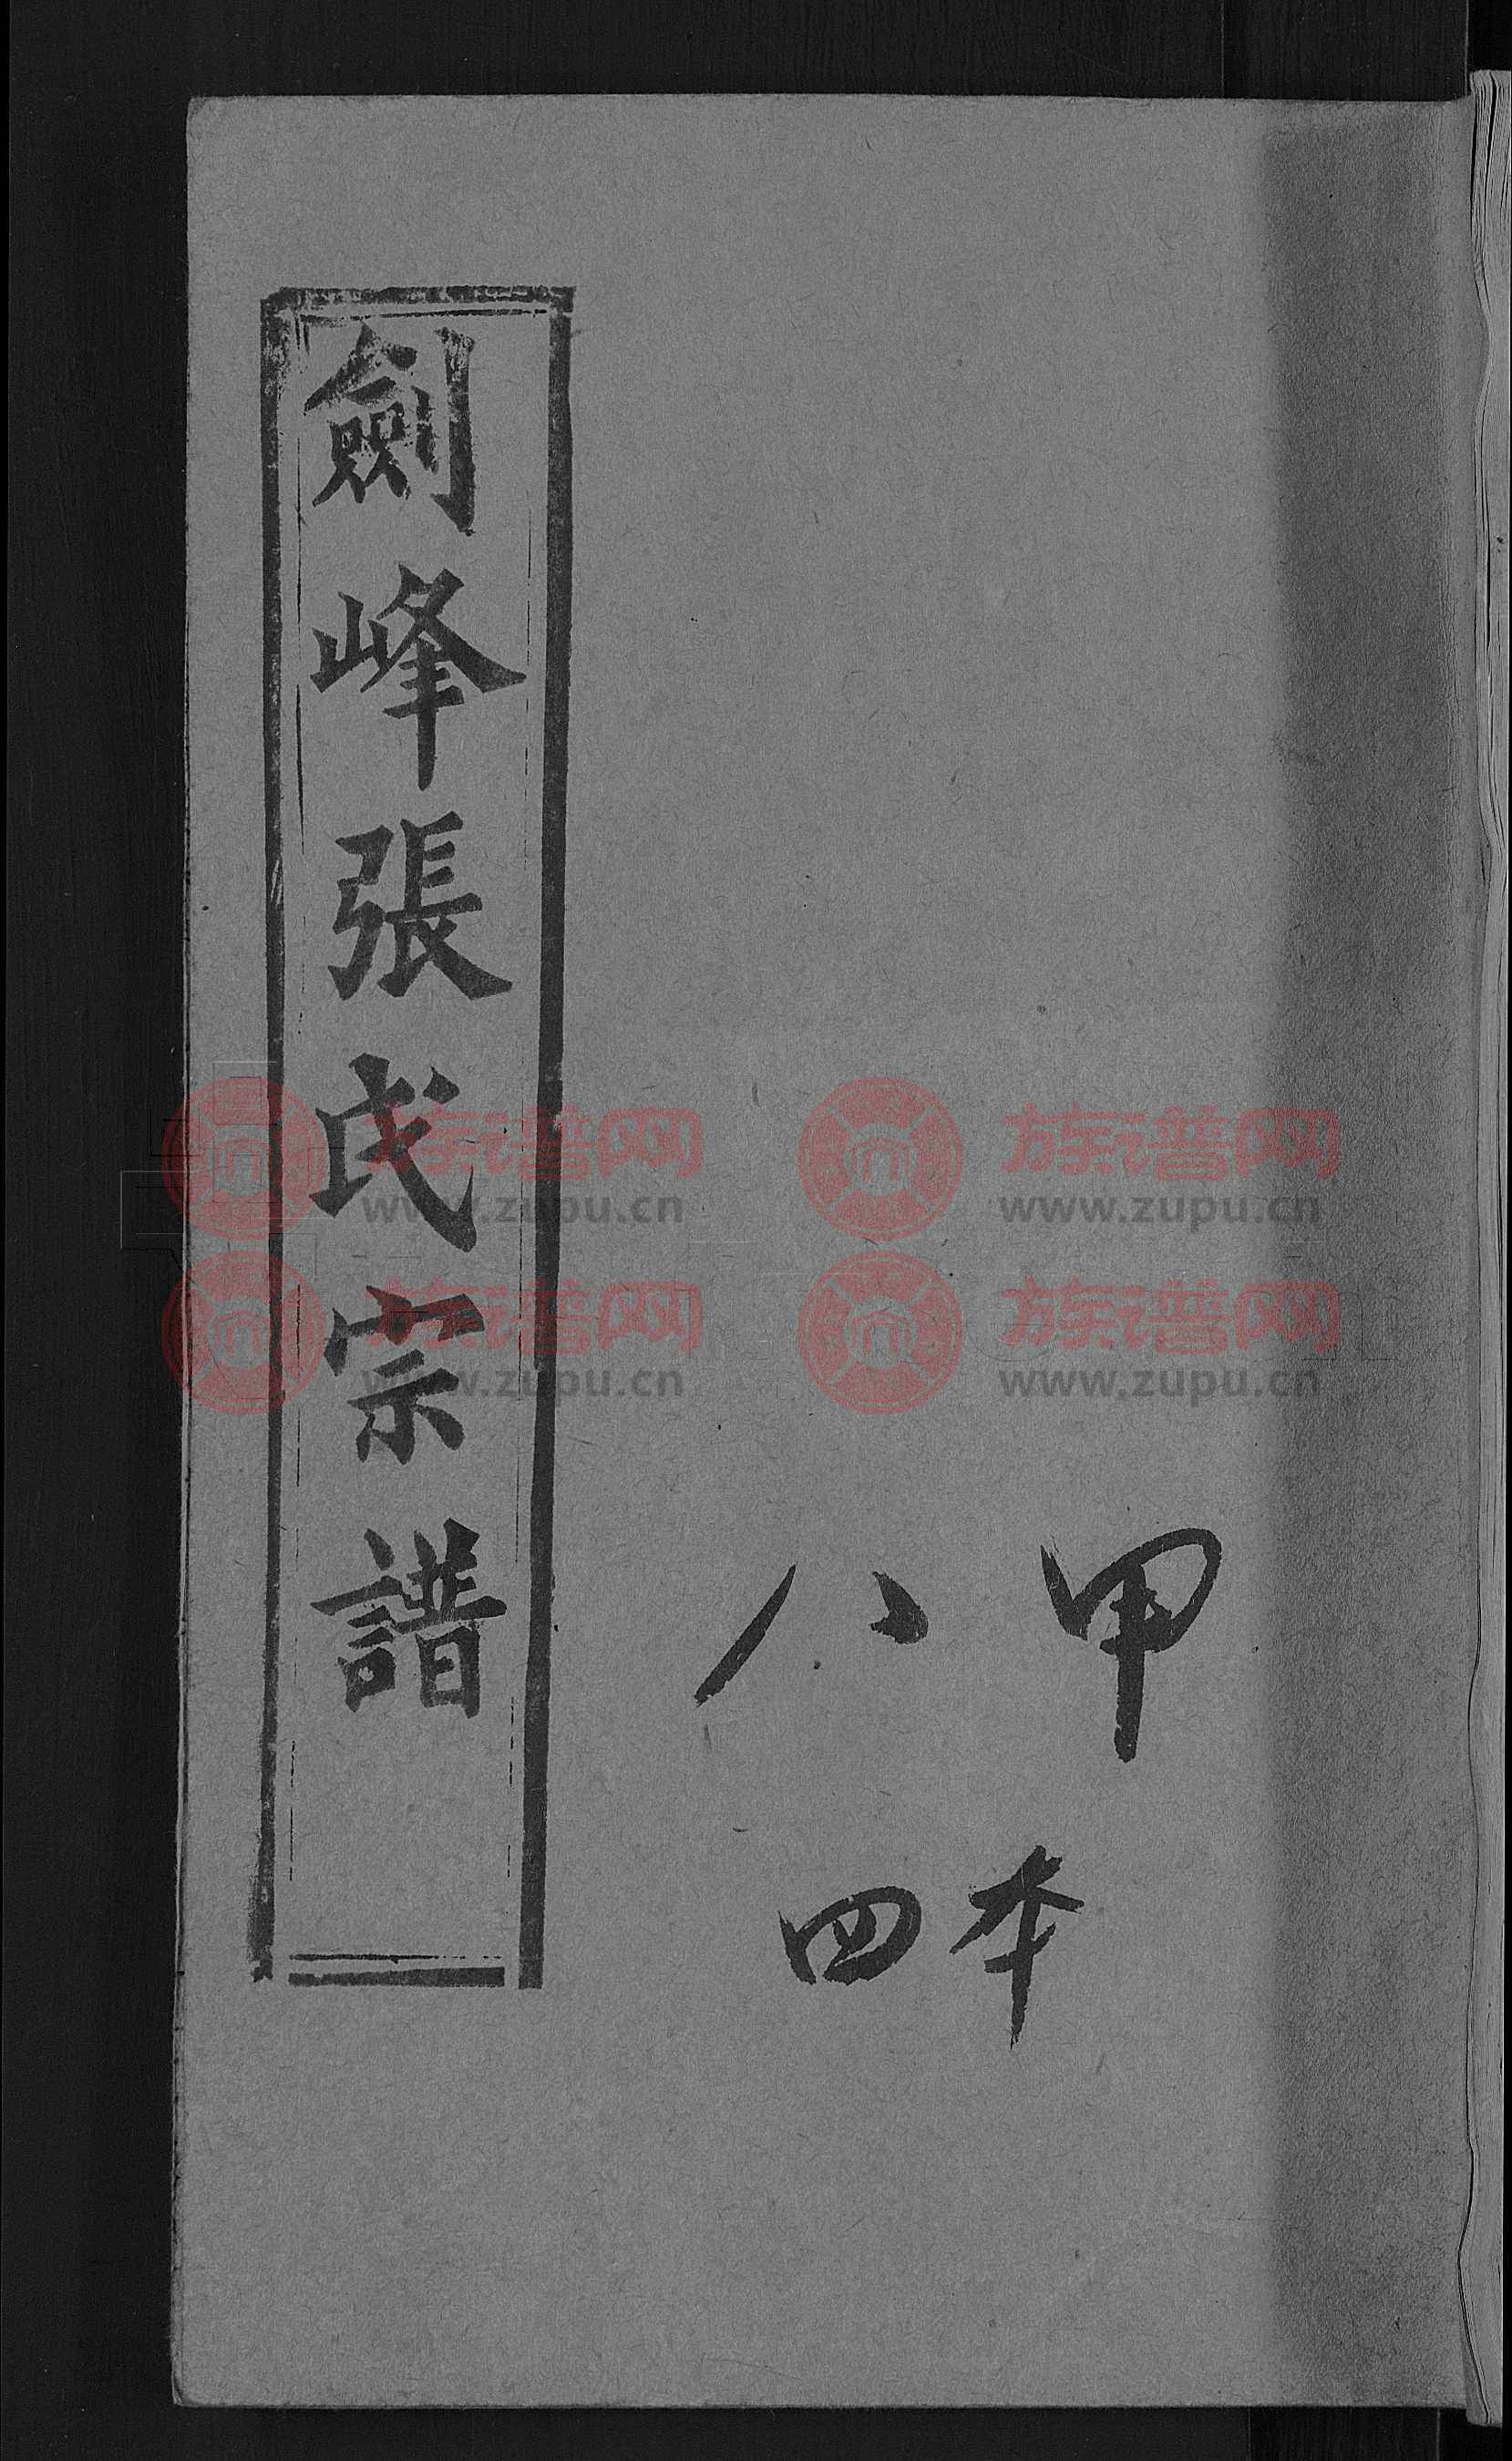 甲
本
八
四
劍峰張氏宗譜
族谱网
www.zupu.cn
族谱网
www.zupu.cn
族谱网
www.zupu.cn
族谱网
www.zupu.cn